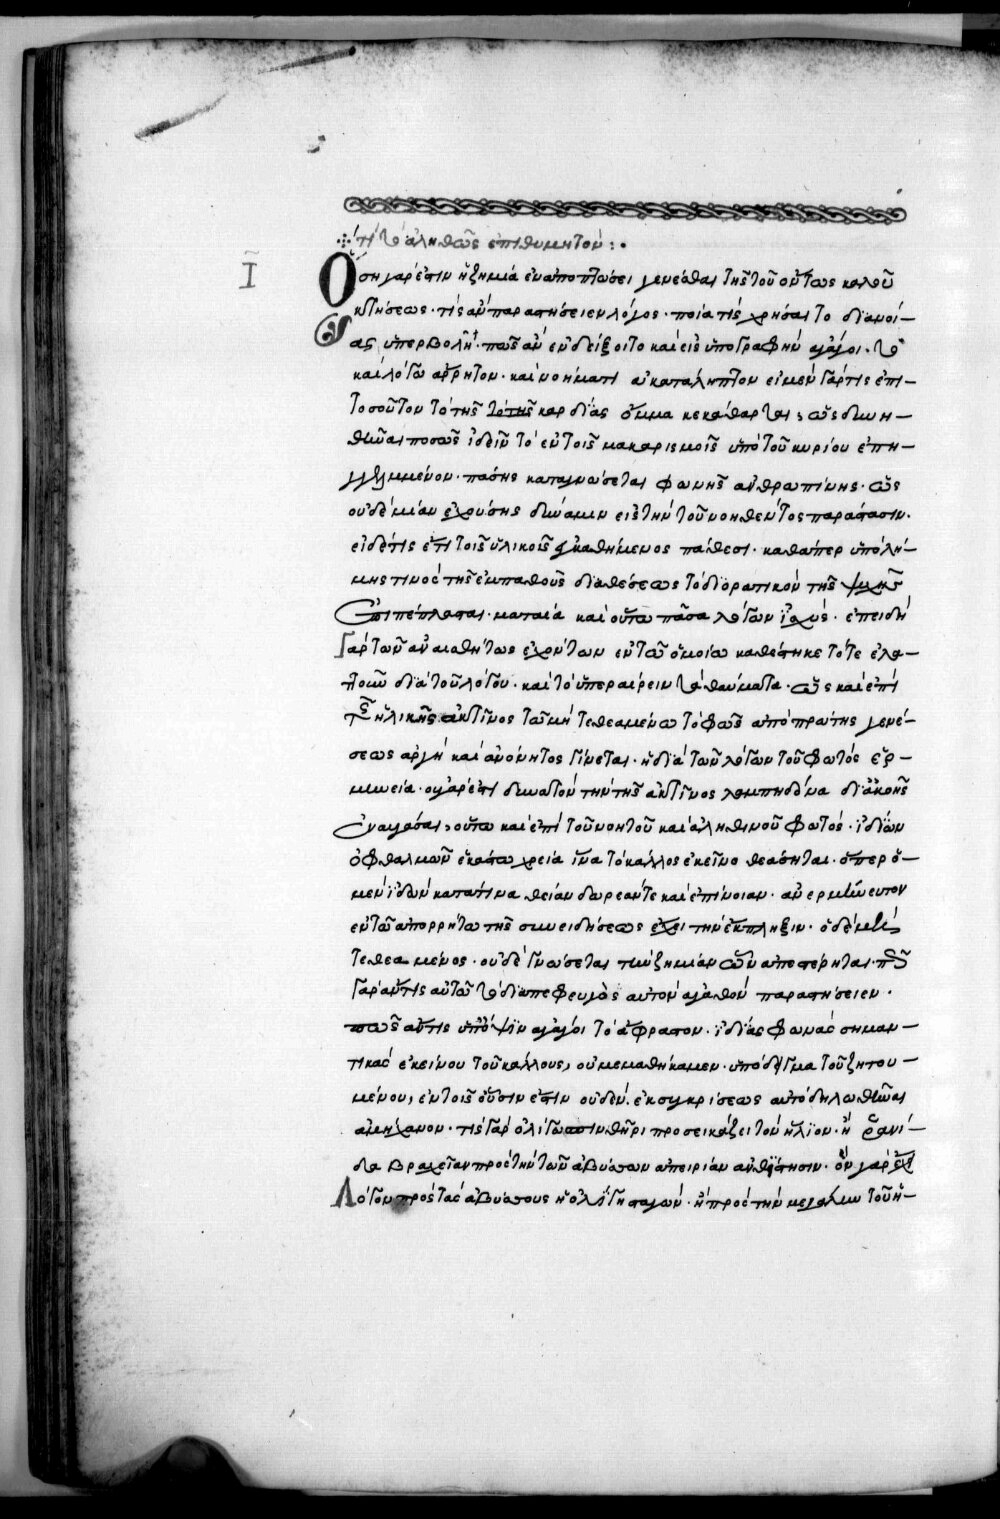 τί τὸ ἀληθῶς ἐπιθυμητόν :·
Ι
Ὅση γάρ ἐστιν ἡ ζημία ἐν ἀποπτώσει γενέσθαι τῆς τοῦ ὄντως καλοῦ
κτήσεως· τίς ἂν παραστήσειεν λόγος· ποία τίς χρήσαιτο διανοί-
ας ὑπερβολῇ· πῶς ἂν ἐνδείξοιτο καὶ εἰς ὑπογραφὴν ἀγάγοι· τὸ
καὶ λόγω ἄρρητον· καὶ νοήματι ἀκατάληπτον εἰ μὲν γάρ τις ἐπι-
τοσοῦτον τὸ τῆς καρδίας ὄμμα κεκάθαρται, ὡς δυνη-
θῆναι ποσῶς ἰδεῖν τὸ ἐν τοῖς μακαρισμοῖς ὑπὸ τοῦ κυρίου ἐπη-
γγελμμένον· πάσης καταγνώσεται φωνῆς ἀνθρωπίνης· ὡς
οὐδεμίαν ἐχούσης δύναμιν εἰς τὴν τοῦ νοηθέντος παράστασιν·
εἰ δέ τις ἔτι τοῖς ὑλικοῖς ἐγκαθήμενος πάθεσι· καθάπερ ὑπὸ λή-
μης τινὸς τῆς ἐμπαθοῦς διαθέσεως τὸ διορατικὸν τῆς ψυχῆς
ἐπιπέπλασται· ματαία καὶ οὕτω πᾶσα λόγων ἰσχύς· ἐπειδὴ
γὰρ τῶν ἀναισθήτως ἐχόντων ἐν τῶ ὁμοίω καθέστηκε τό τε ἐλα-
ττοῦν διὰ τοῦ λόγου· καὶ τὸ ὑπεραίρειν τὰ θαύματα· ὡς καὶ ἐπὶ
τῆς ἡλικῆς ἀκτῖνος τῶ μὴ τεθεαμένω τὸ φῶς ἀπὸ πρώτης γενέ-
σεως ἀργὴ καὶ ἀνόνητος γίνεται· ἡ διὰ τῶν λόγων τοῦ φωτὸς ἑρ-
μηνεία· οὐ γάρ ἐστι δυνατὸν τὴν τῆς ἀκτῖνος λαμπηδόνα δι' ἀκοῆς
ἐναυγάσαι, οὕτω καὶ ἐπὶ τοῦ νοητοῦ καὶ ἀληθινοῦ φωτός· ἰδίων
ὀφθαλμῶν ἑκάστω χρεία ἵνα τὸ κάλλος ἐκεῖνο θεάσηται· ὅπερ ὁ-
μὲν ἰδὼν κατά τινα θείαν δωρεάν τε καὶ ἐπίνοιαν· ἀνερμήνευτον
ἐν τῶ ἀπορρήτω τῆς συνειδήσεως ἔχει τὴν ἔκπληξιν· ὁ δὲ μὴ
τεθεαμένος· οὐδὲ γνώσεται τὴν ζημίαν ὧν ἀπεστέρηται· πῶς
γὰρ ἄν τις αὐτῶ τὸ διαπεφευγὸς αὐτὸν ἀγαθὸν παραστήσειεν·
πῶς ἄν τις ὑπ' ὄψιν ἀγάγοι τὸ ἄφραστον· ἰδίας φωνὰς σημαν-
τικὰς ἐκείνου τοῦ κάλλους, οὐ μεμαθήκαμεν· ὑπόδειγμα τοῦ ζητου-
μένου, ἐν τοῖς οὖσιν ἐστὶν οὐδέν· ἐκ συγκρίσεως αὐτὸ δηλωθῆναι
ἀμήχανον· τίς γὰρ ὀλίγω σπινθῆρι προσεικάζει τὸν ἥλιον· ἢ ρανί-
δα βραχεῖαν πρὸς τὴν τῶν ἀβύσσων ἀπειρίαν ἀνθίστησιν· ὃν γὰρ ἔχει
λόγον πρὸς τὰς ἀβύσσους ἡ ὀλίγη σταγών· ἢ πρὸς τὴν μεγάλην τοῦ ἡ-